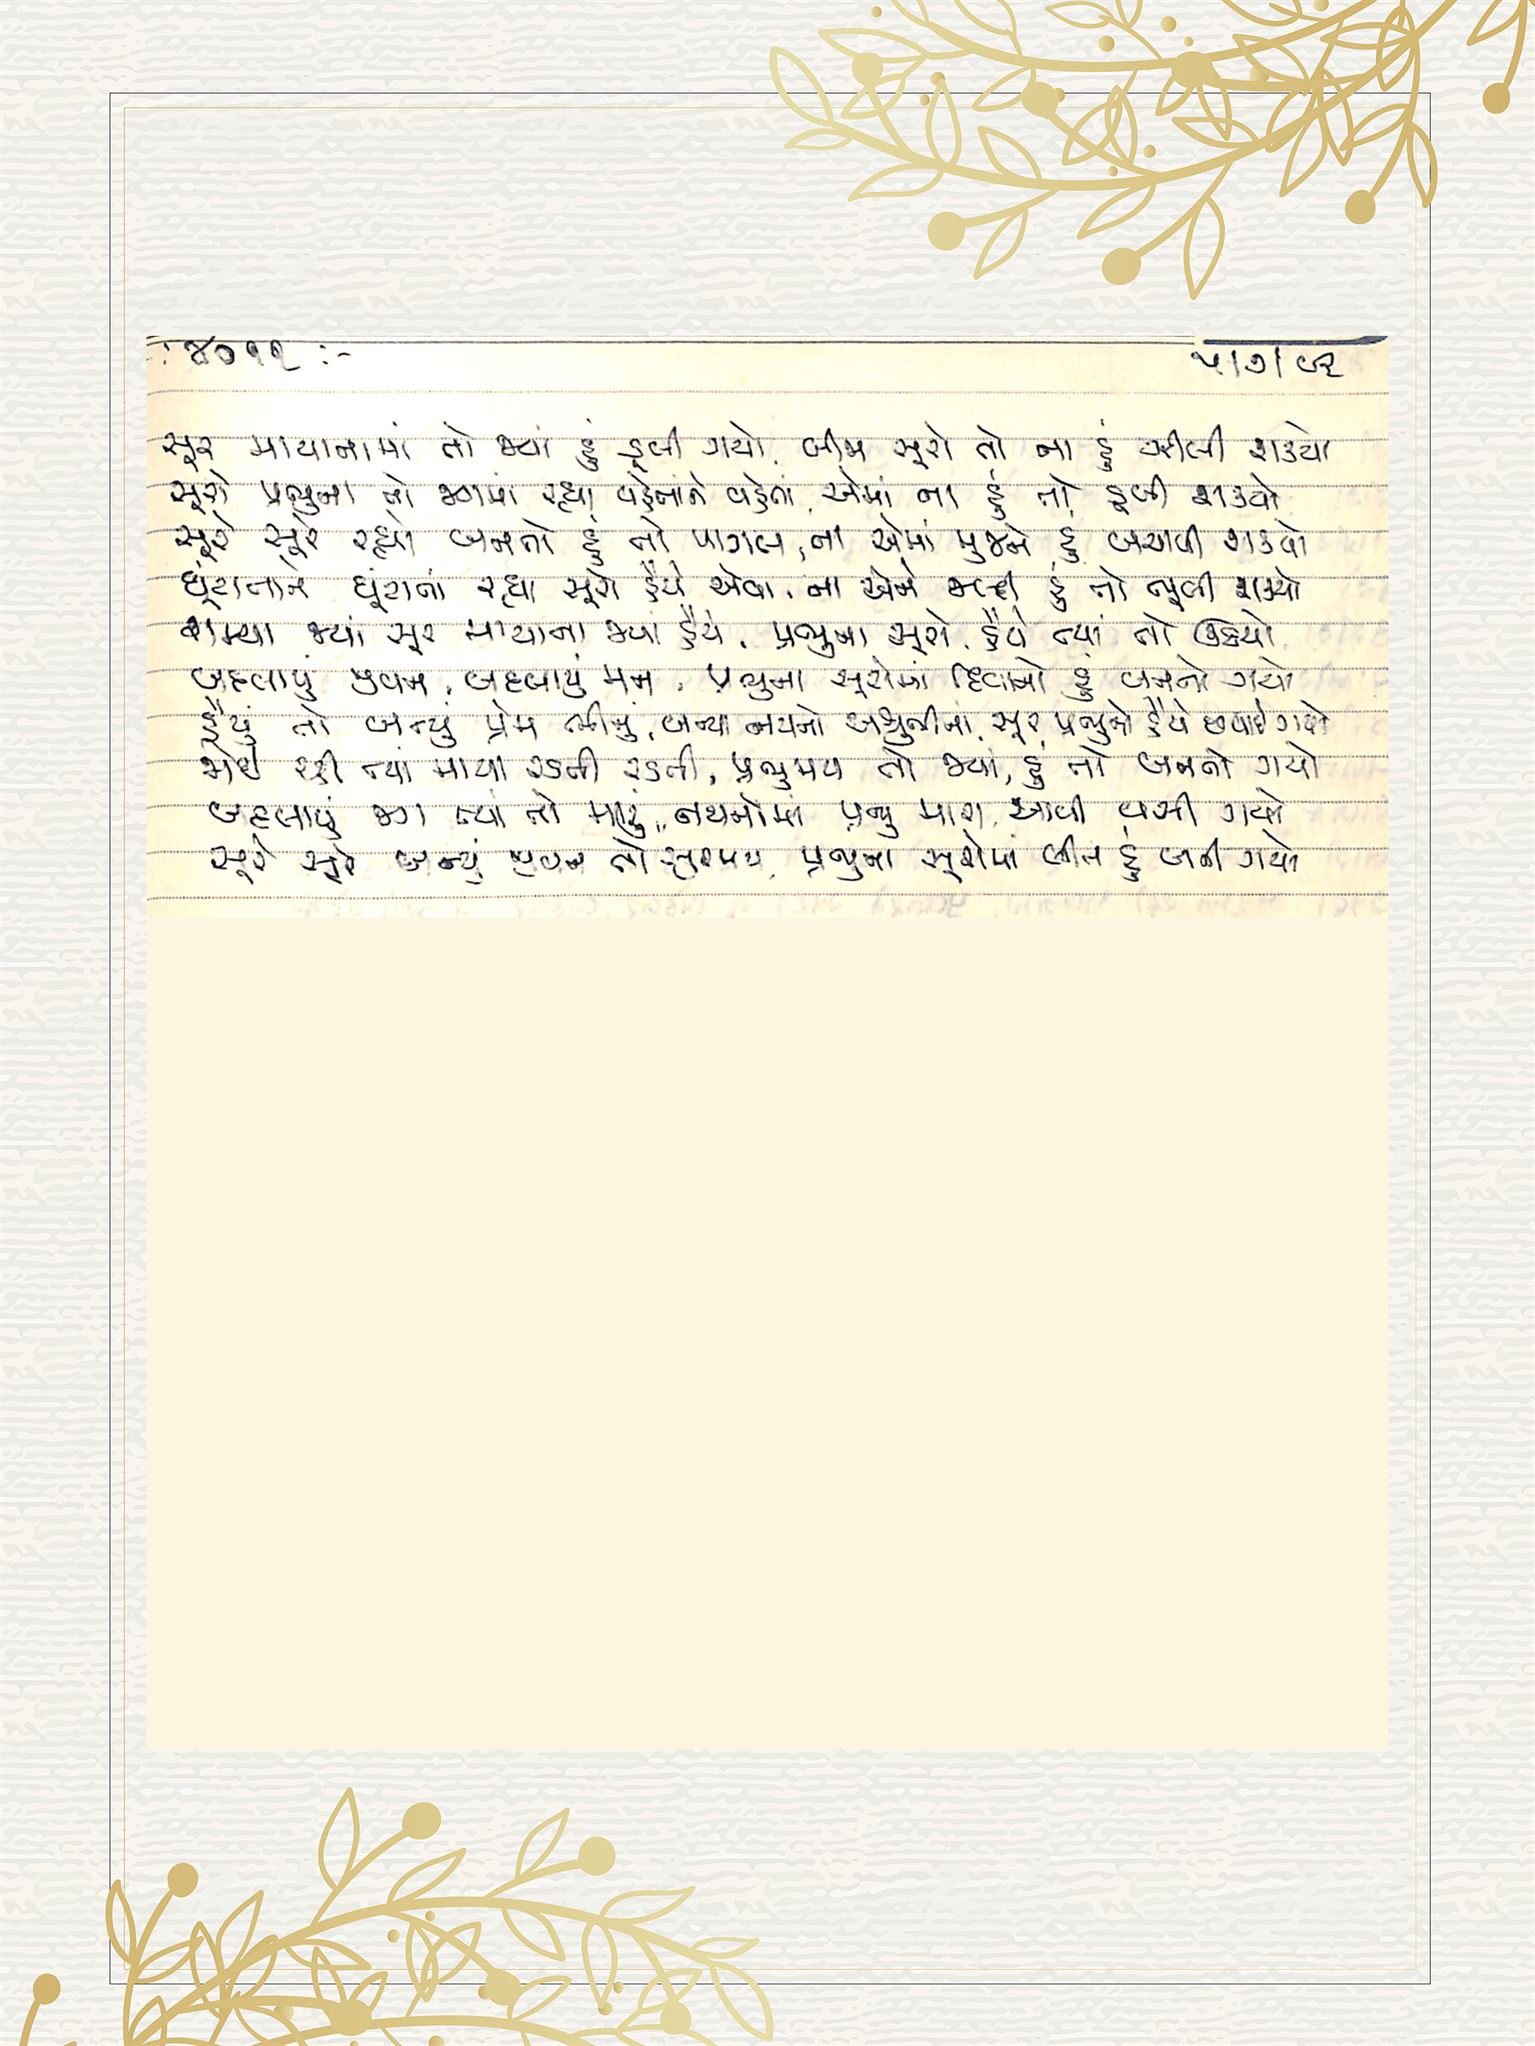 : ૪૦૧૧ :-
૫/૭/૯૨
સૂર માયાનામાં તો જ્યાં હું ડૂબી ગયો, બીજા સૂરો તો ના હું ઝીલી શક્યો
સૂરો પ્રભુના તો જગમાં રહ્યા વહેતાંને વહેતાં, એમાં ના હું તો ડૂબી શક્યો
સૂરે સૂરે રહ્યો બનતો હું તો પાગલ, ના એમાં મુજને હું બચાવી શક્યો
ઘૂંટાતાને ઘૂંટાતાં રહ્યા સૂરો હૈયે એવા, ના એને જલ્દી હું તો ભૂલી શક્યો
શમ્યા જ્યાં સૂર માયાના જ્યાં હૈયે, પ્રભુના સૂરો હૈયે ત્યાં તો
બદલાયું જીવન, બદલાયું મન, પ્રભુના સૂરોમાં દિવાનો હું બનતો ગયો
હૈયું તો બન્યું પ્રેમ ભીનું, બન્યા નયનો અશ્રુભીનાં, સૂર પ્રભુનો હૈયે છવાઈ ગયો
જોઈ રહી ત્યાં માયા રડતી રડતી, પ્રભુમય તો જ્યાં, હું તો બનતો ગયો
બદલાયું જગ ત્યાં તો મારું, નયનોમાં પ્રભુ મારા આવી વસી ગયો
સૂરે સૂરે બન્યું જીવન તો સૂરમય, પ્રભુના સૂરોમાં લીન હું બની ગયો